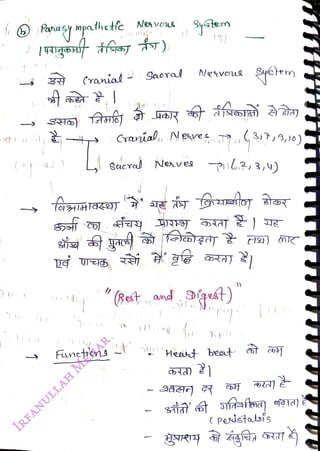 (b) Parasympathetic Nervous System
(परानुकम्पी तंत्रिका तंत्र)
→ इसे Cranial - Sacral Nervous System
भी कहते है।
→ इसका निर्माण दो प्रकार की तंत्रिकाओं से होता
है → Cranial Nerves → (3,7,9,10)
→ Sacral Nerves → (2,3,4)
→ विश्रामावस्था में यह तंत्र क्रियाशील होकर
ऊर्जा का संचय प्रारम्भ करता है। यह
आँख की पुतली को सिकोड़ता है तथा लार
एवं पाचक रसों में वृद्धि करता है।
"(Rest and Digest)"
→ Functions - - Heart beat को कम
करता है।
- श्वसन दर कम करता है
- आँतों की गतिशीलता बढ़ाता है
(peristalsis
- मूत्राशय को संकुचित करता है।
IRFANULLAH